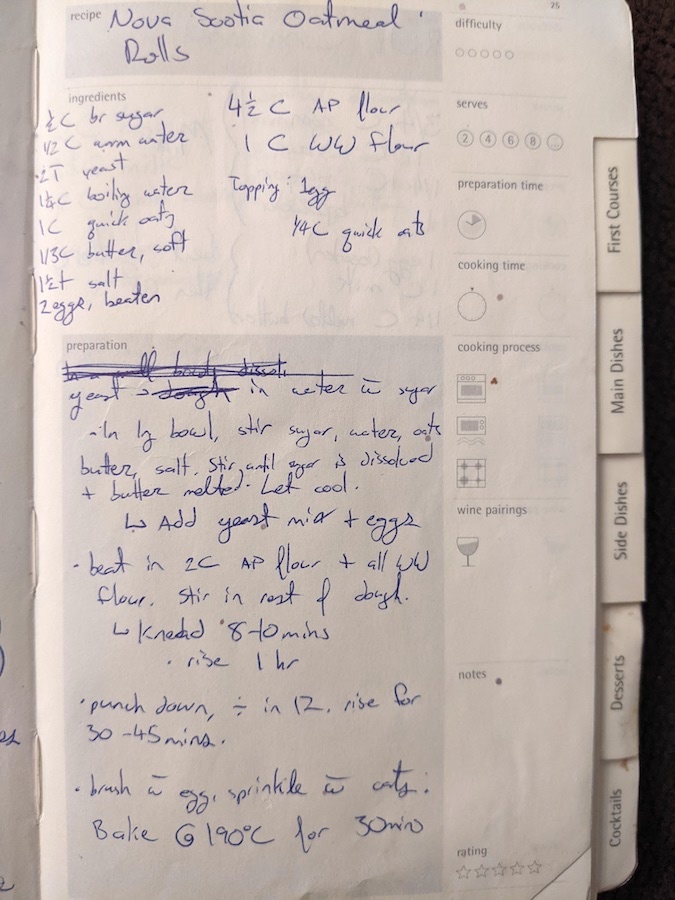 recipe Nova Scotia Oatmeal
Rolls
25
difficulty
ingredients
½C br sugar
1/2 C warm water
2T yeast
1¼C boiling water
1C quick oats
1/3C butter, soft
1½t salt
2 eggs, beaten
4½ C AP flour
1 C WW flour
Topping: 1egg
¼C quick oats
serves
2 4 6 8
preparation time
cooking time
cooking process
wine pairings
notes
rating
preparation
yeast → in water w̄ sugar
- In lg bowl, stir sugar, water, oats
butter, salt. Stir until sugar is dissolved
+ butter melted. Let cool.
↳ Add yeast mix + eggs
· beat in 2C AP flour + all WW
flour. Stir in rest of dough.
↳ Knead 8-10mins
· rise 1 hr
· punch down, ÷ in 12. rise for
30-45mins.
· brush w̄ egg, sprinkle w̄ oats.
Bake @ 190°C for 30min
First Courses
Main Dishes
Side Dishes
Desserts
Cocktails